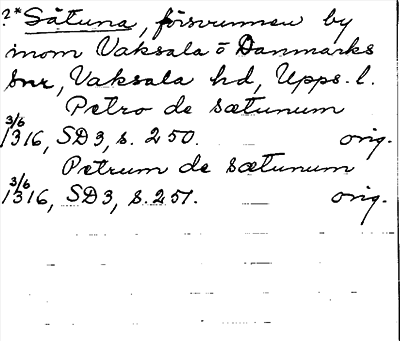 ?*Såtuna, försvunnen by
inom Vaksala o Danmarks
snr, Vaksala hd, Upps. l.
Petro de sætunum
3/6
1316, SD3, s. 250. orig.
Petrum de sætunum
3/6
1316, SD3, s. 251. orig.